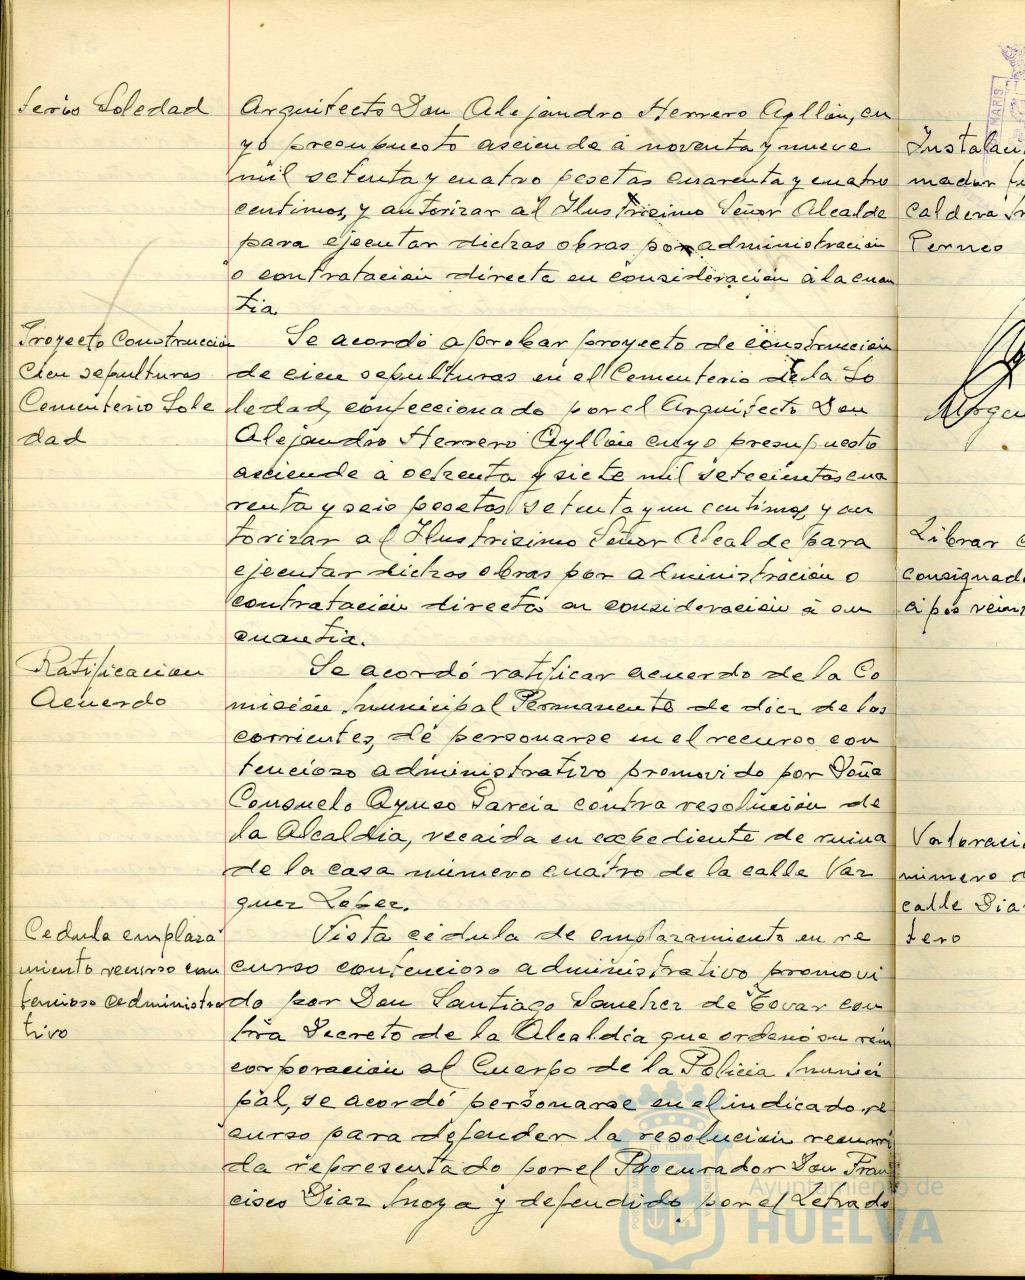 terio Soledad
Arquitecto Don Alejandro Herrero Ayllón, cu
yo presupuesto asciende á noventa y nueve
mil setenta y cuatro pesetas cuarenta y cuatro
centimos, y autorizar al Ilustrisimo Señor Alcalde
para ejecutar dichas obras por administración
o contratación directa en consideración á la cuan
tia.
Proyecto Construcción
cien sepulturas
Cementerio Sole
dad
Se acordó aprobar proyecto de construccion
de cien sepulturas en el Cementerio de la So
ledad, confeccionado por el Arquitecto Don
Alejandro Herrero Ayllón cuyo presupuesto
asciende á ochenta y siete mil setecientas cua
renta y seis pesetas setenta y un centimos, y au
torizar al Ilustrisimo Señor Alcalde para
ejecutar dichas obras por administración o
contratación directa en consideración á su
cuantia.
Ratificacion
Acuerdo
Se acordó ratificar acuerdo de la Co
misión Municipal Permanente de diez de los
corrientes, de personarse en el recurso con
tencioso administrativo promovido por Doña
Consuelo Ayuso Garcia contra resolución de
la Alcaldia, recaida en expediente de ruina
de la casa número cuatro de la calle Vaz
quez Lopez.
Cedula emplaza
miento recurso con
tencioso administra
tivo
Vista cédula de emplazamiento en re
curso contencioso administrativo promovi
do por Don Santiago Sanchez de Tovar con
tra Decreto de la Alcaldia que ordenó su rein
corporación al Cuerpo de la Policia Munici
pal, se acordó personarse en el indicado re
curso para defender la resolución recurri
da representado por el Procurador Don Fran
cisco Diaz Moya y defendido por el Letrado
Instalaci
mador
caldera
Perneo
Librar
consignad
Valoraci
número d
calle Dia
tero
MARIS
Ayuntamiento de
HUELVA